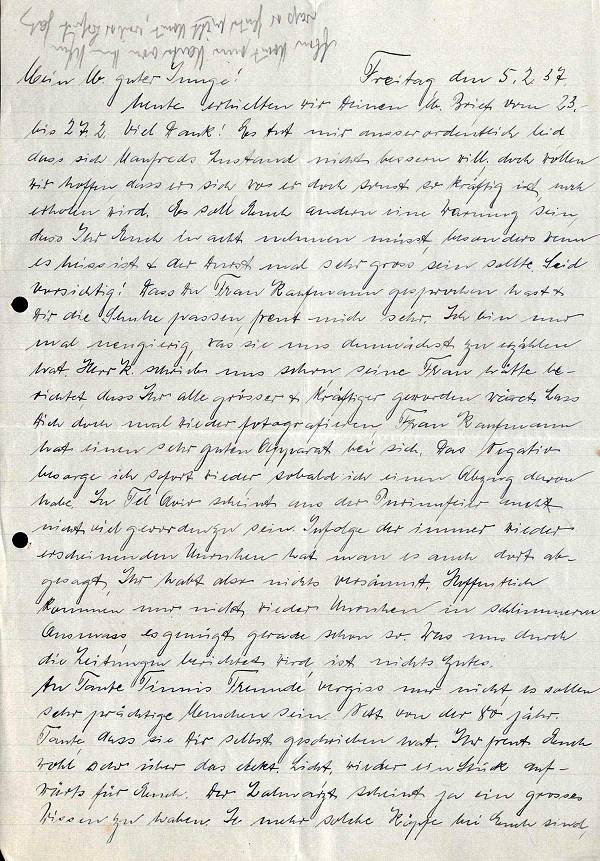 Mein lb. guter Junge! Freitag den 5.2.37
heute erhielten wir Deinen lb. Brief vom 23.-
bis 27.2. Viel Dank! Es tut mir ausserordentlich leid
dass sich Manfreds Zustand nicht bessern will. doch wollen
wir hoffen dass er sich, wo er doch sonst so kräftig ist, noch
erholen wird. Es soll Euch andern eine Warnung sein,
dass Ihr Euch in acht nehmen müsst, besonders wenn
es heiss ist & der Durst mal sehr gross sein sollte Seid
vorsichtig! Dass Du Frau Kaufmann gesprochen hast &
Dir die Schuhe passen, freut mich sehr. Ich bin nur
mal neugierig, was sie uns demnächst zu erzählen
hat. Herr K. schrieb uns schon seine Frau hätte be-
richtet, dass Ihr alle grösser & kräftiger geworden wäret. Lass
Dich doch mal wieder fotografieren Frau Kaufmann
hat einen sehr guten Apparat bei sich. Das Negativ
besorge ich sofort wieder sobald ich einen Abzug davon
habe. In Tel Aviv scheint aus der Purimfeier auch
nicht viel geworden zu sein. Infolge der immer wieder
erscheinenden Unruhen hat man es auch dort ab-
gesagt, Ihr habt also nichts versäumt. Hoffentlich
kommen nur nicht wieder Unruhen in schlimmerem
Ausmass, es genügt gerade schon so. Was uns durch
die Zeitungen berichtet wird, ist nichts Gutes.
An Tante Finnis Freunde, vergiss nur nicht, es sollen
sehr prächtige Menschen sein. Nett von der 80 jähr.
Tante, dass sie Dir selbst geschrieben hat. Ihr freut Euch
wohl sehr über das elekt. Licht, wieder ein Stück auf-
wärts für Euch. Der Zahnarzt scheint ja ein grosses
Wissen zu haben. Je mehr solche Köpfe bei Euch sind,